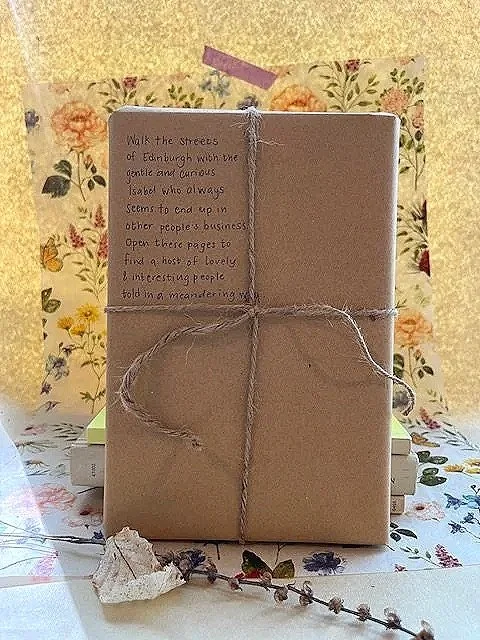 Walk the streets
of Edinburgh with the
gentle and curious
Isabel who always
seems to end up in
other people's business
Open these pages to
find a host of lovely
& interesting people
told in a meandering way